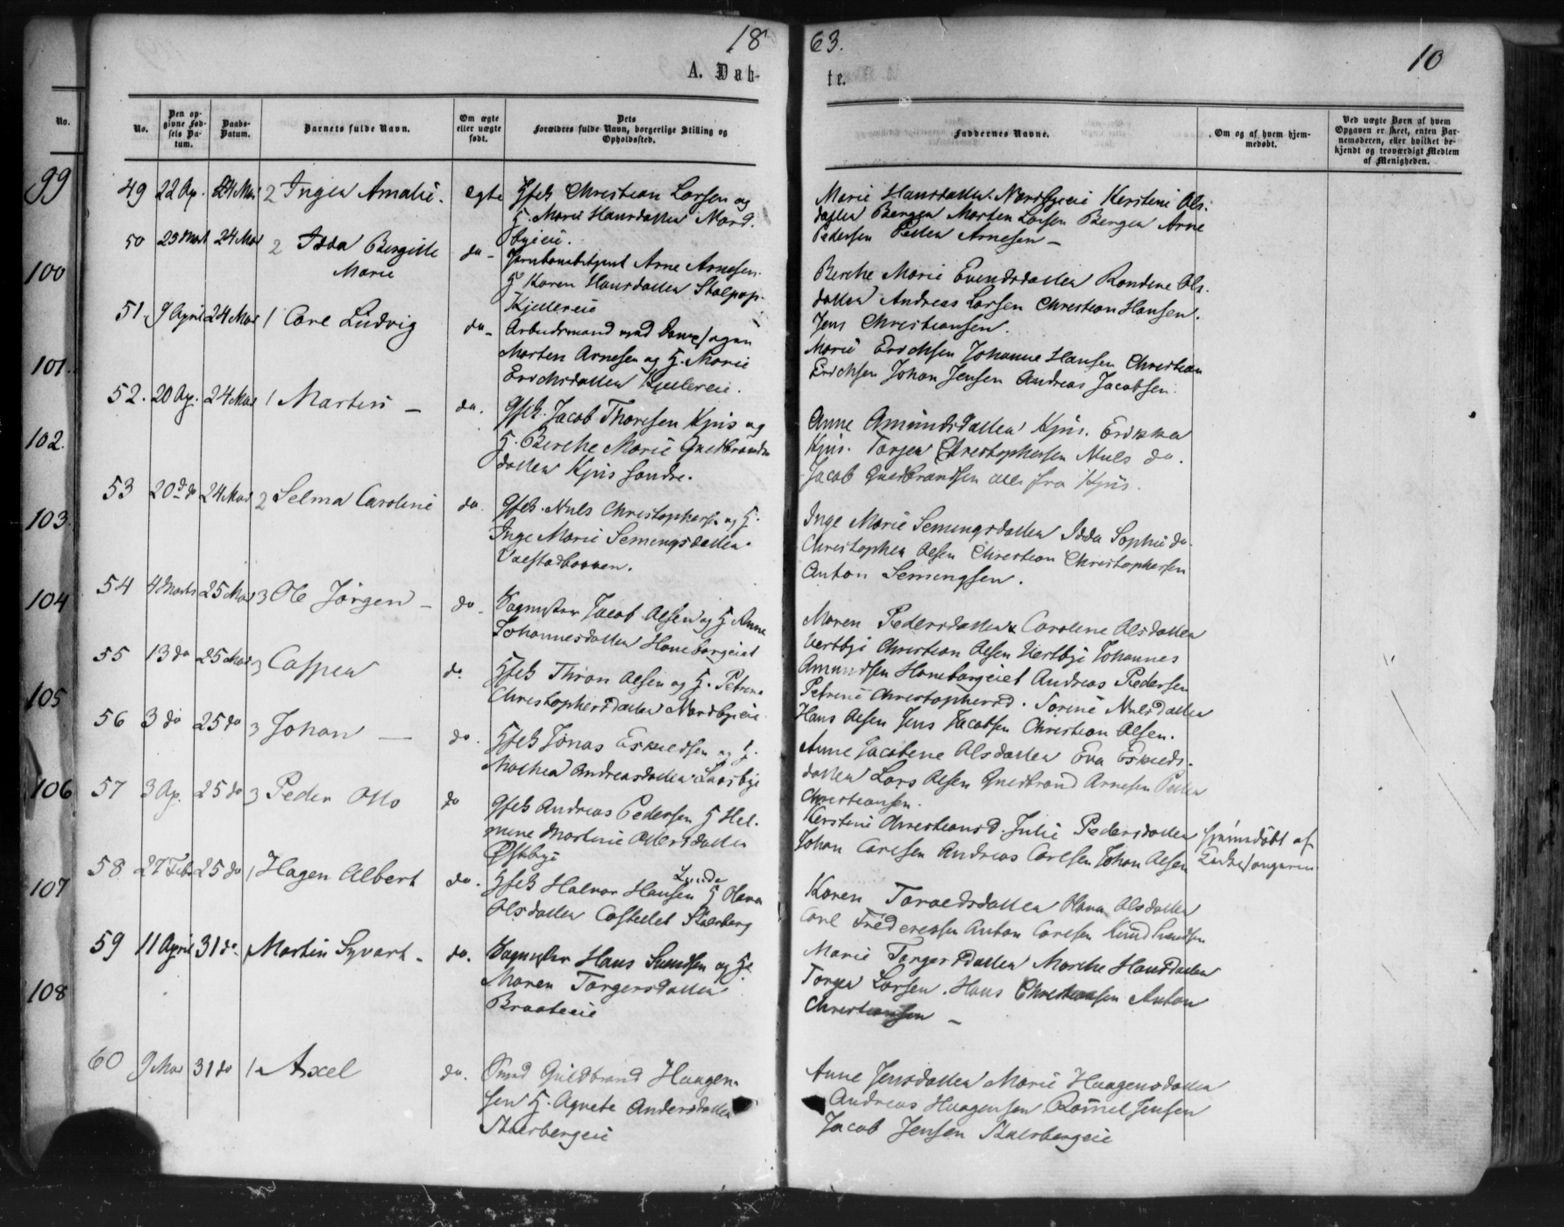 18 63.
10
A. Dab- te.
No.
No.
Den opgivne Fødsels Datum.
Daabs-Datum.
Barnets fulde Navn.
Om ægte eller uægte født.
Dets Forældres fulde Navn, borgerlige Stilling og Opholdssted.
Faddernes Navne.
Om og af hvem hjemmedøbt.
Ved uægte Børn af hvem Opgaven er skeet, enten Barnemoderen, eller hvilket bekjendt og troværdigt Medlem af Menigheden.
99
100
101.
102.
103.
104
105
106
107
108
49 22 Ap. 24 Mai 2 Inger Amalie. ægte
Gfek Christian Larsen og
H. Marie Hansdatter Nord-
byeie.
Marie Hansdatter Nordbyeie Kerstine Ols-
datter Bergen Morten Larsen Bergen Arne
Pedersen Petter Arnesen -
50 23 Mart 24 Mai 2 Idda Bergitte
Marie
do -
Arne Arnesen
H Karen Hansdatter
Kjellereie
Berthe Marie Evendsdatter Randine Ols-
datter Andreas Larsen Christian Hansen.
Jens Christiansen.
51. 9 April 24 Mai 1 Carl Ludvig do -
Arbeidsmand ved
Morten Arnesen og H. Marie
Erichsdatter Kjellereie.
Marie Erichsen Johanne Hansen Christian
Erichsen Johan Jensen Andreas Jacobsen.
52. 20 Ap. 24 Mai 1 Martin - do.
Gfek. Jacob Thoresen Kjus og
H. Berthe Marie Guldbrands-
datter Kjus søndre.
Anne Amundsdatter Kjus. Erikka
Kjus. Torger Christophersen Nuls do.
Jacob Guldbrandsen alle fra Kjus.
53 20 do 24 Mai 2 Selma Caroline do.
Gfek. Nuls Christophersen og H.
Inge Marie Semingsdatter
Inge Marie Semingsdatter Idda Sophie do.
Christopher Olsen Christian Christophersen
Anton Semingsen.
54 4 Marts 25 Mai 3 Ole Jørgen - do -
Jacob Olsen og H Anne
Johannesdatter Haneborgeiet
Maren Pedersdatter Caroline Olsdatter
Christian Olsen Johannes
Amundsen Haneborgeiet Andreas Pedersen
55 13 do 25 Mai 3 Casper do.
Gfek Thron Olsen og H. Petrine
Christophersdatter Nordbyeie
Petrine Christophersd. Torine Nulsdatter
Hans Olsen Jens Jacobsen Christian Olsen.
56 3 do 25 do 3 Johan - do.
Gfek Jonas Eskildsen og H.
Mathea Andreasdatter
Anne Jacobine Olsdatter Eva Eskilds-
datter Lars Olsen Guldbrand Arnesen Petter
Christiansen.
57 3 Ap. 25 do 3 Peder Otto do
Gfek Andreas Pedersen H Hel-
mine Martine Ottersdatter
Østbye
Kerstine Christiansd. Julie Pedersdatter
Johan Carlsen Andreas Carlsen Johan Olsen
hjemmedøbt af
58 27 Feb 25 do 1 Hagen Albert do.
Gfek Halvor Hansen Lunde H Olava
Olsdatter Castellet Skaarberg
Karen Toraldsdatter Olava Olsdatter
Carl Frederiksen Anton Carlsen
59 11 April 31 do. Martin Syvart - do.
Hans og H.
Maren Torgersdatter
Braateeie
Marie Torgersdatter Marthe Hansdatter
Torger Larsen. Hans Christiansen Anton
Christiansen -
60 9 Mai 31 do 1 Axel do.
Smed Guldbrand Haagen-
sen H. Agnete Andersdatter
Anne Jensdatter Marie Haagensdatter
Andreas Haagensen Jensen
Jacob Jensen